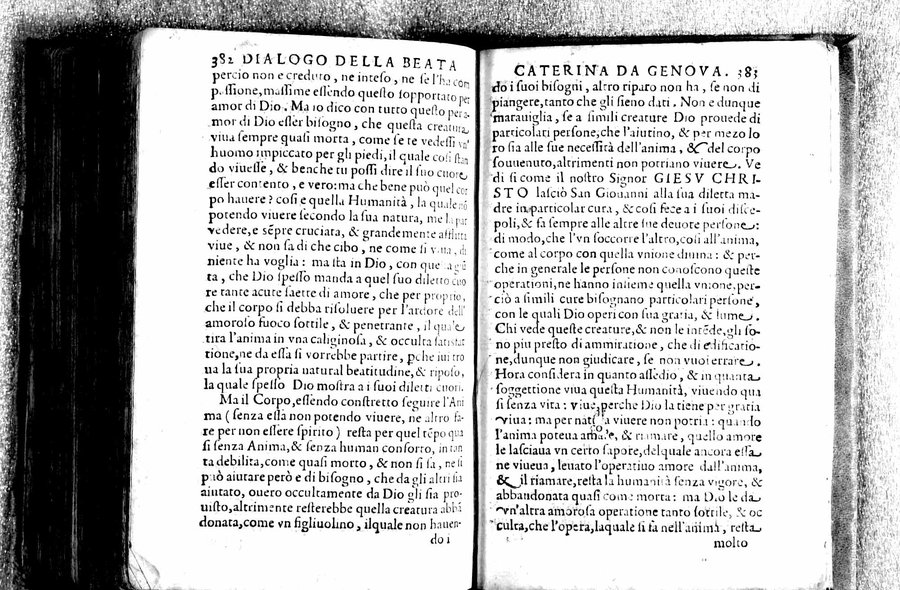 382 DIALOGO DELLA BEATA
percio non e creduto, ne inteso, ne se l'ha com
passione, massime essendo questo sopportato per
amor di Dio. Ma io dico con tutto questo per a-
mor di Dio esser bisogno, che questa creatura
viua sempre quasi morta, come se te vedessi vn'
huomo impiccato per gli piedi, il quale cosi stan
do viuesse, & benche tu possi dire il suo cuore
esser contento, e vero: ma che bene può quel cor
po hauere? cosi e quella Humanità, la quale nō
potendo viuere secondo la sua natura, me la par
vedere, e sēpre cruciata, & grandemente afflitta
viue, & non sa di che cibo, ne come si viua, di
niente ha voglia: ma sta in Dio, con que
ta, che Dio spesso manda a quel suo diletto cuo
re tante acute saette di amore, che per proprio,
che il corpo si debba risoluere per l'ardore dell'
amoroso fuoco sottile, & penetrante, il quale
tira l'anima in vna caliginosa, & occulta satisfat
tione, ne da essa si vorrebbe partire, pche iui tro
ua la sua propria natural beatitudine, & riposo,
la quale spesso Dio mostra a i suoi diletti cuori.
Ma il Corpo, essendo constretto seguire l'Ani
ma (senza essa non potendo viuere, ne altro fa-
re per non essere spirito) resta per quel tēpo qua
si senza Anima, & senza human conforto, in tan
ta debilita, come quasi morto, & non si sa, ne si
può aiutare però e di bisogno, che da gli altri sia
aiutato, ouero occultamente da Dio gli sia pro-
uisto, altrimente resterebbe quella creatura abbā
donata, come vn figliuolino, ilquale non hauen-
do i
CATERINA DA GENOVA. 383
do i suoi bisogni, altro riparo non ha, se non di
piangere, tanto che gli sieno dati. Non e dunque
marauiglia, se a simili creature Dio prouede di
particolari persone, che l'aiutino, & per mezo lo
ro sia alle sue necessità dell'anima, & del corpo
souuenuto, altrimenti non potriano viuere. Ve
di si come il nostro Signor GIESV CHRI-
STO lasciò San Giouanni alla sua diletta ma-
dre in particolar cura, & cosi fece a i suoi disce-
poli, & fa sempre alle altre sue deuote persone:
di modo, che l'vn soccorre l'altro, cosi all'anima,
come al corpo con quella vnione diuina: & per-
che in generale le persone non conoscono queste
operationi, ne hanno insieme quella vnione, per-
ciò a simili cure bisognano particolari persone,
con le quali Dio operi con sua gratia, & lume.
Chi vede queste creature, & non le intēde, gli so-
no piu presto di ammiratione, che di edificatio-
ne, dunque non giudicare, se non vuoi errare.
Hora considera in quanto assedio, & in quanta
soggettione viua questa Humanità, viuendo qua
si senza vita: viue, perche Dio la tiene per gratia
viua: ma per natura viuere non potria: quando
l'anima poteua amare, & riamare, quello amore
le lasciaua vn certo sapore, delquale ancora essa
ne viueua, leuato l'operatiuo amore dall'anima,
& il riamare, resta la humanità senza vigore, &
abbandonata quasi come morta: ma Dio le da
vn'altra amorosa operatione tanto sottile, & oc
culta, che l'opera, laquale si fa nell'animà, resta
molto